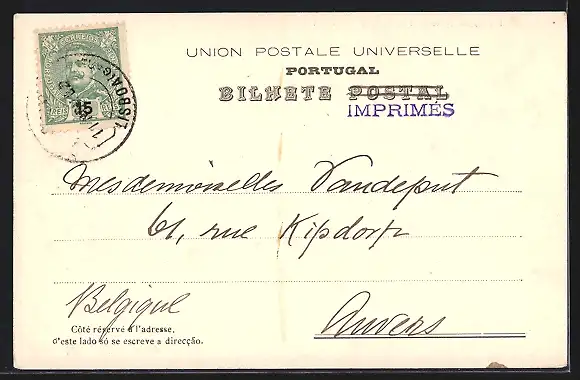 UNION POSTALE UNIVERSELLE
PORTUGAL
BILHETE POSTAL
IMPRIMÉS
CORREIOS
15
LISBOA
Mesdemoiselles Vandeput
61, rue Kipdorp
Belgique
Anvers
Côté réservé à l'adresse,
d'este lado só se escreve a direcção.